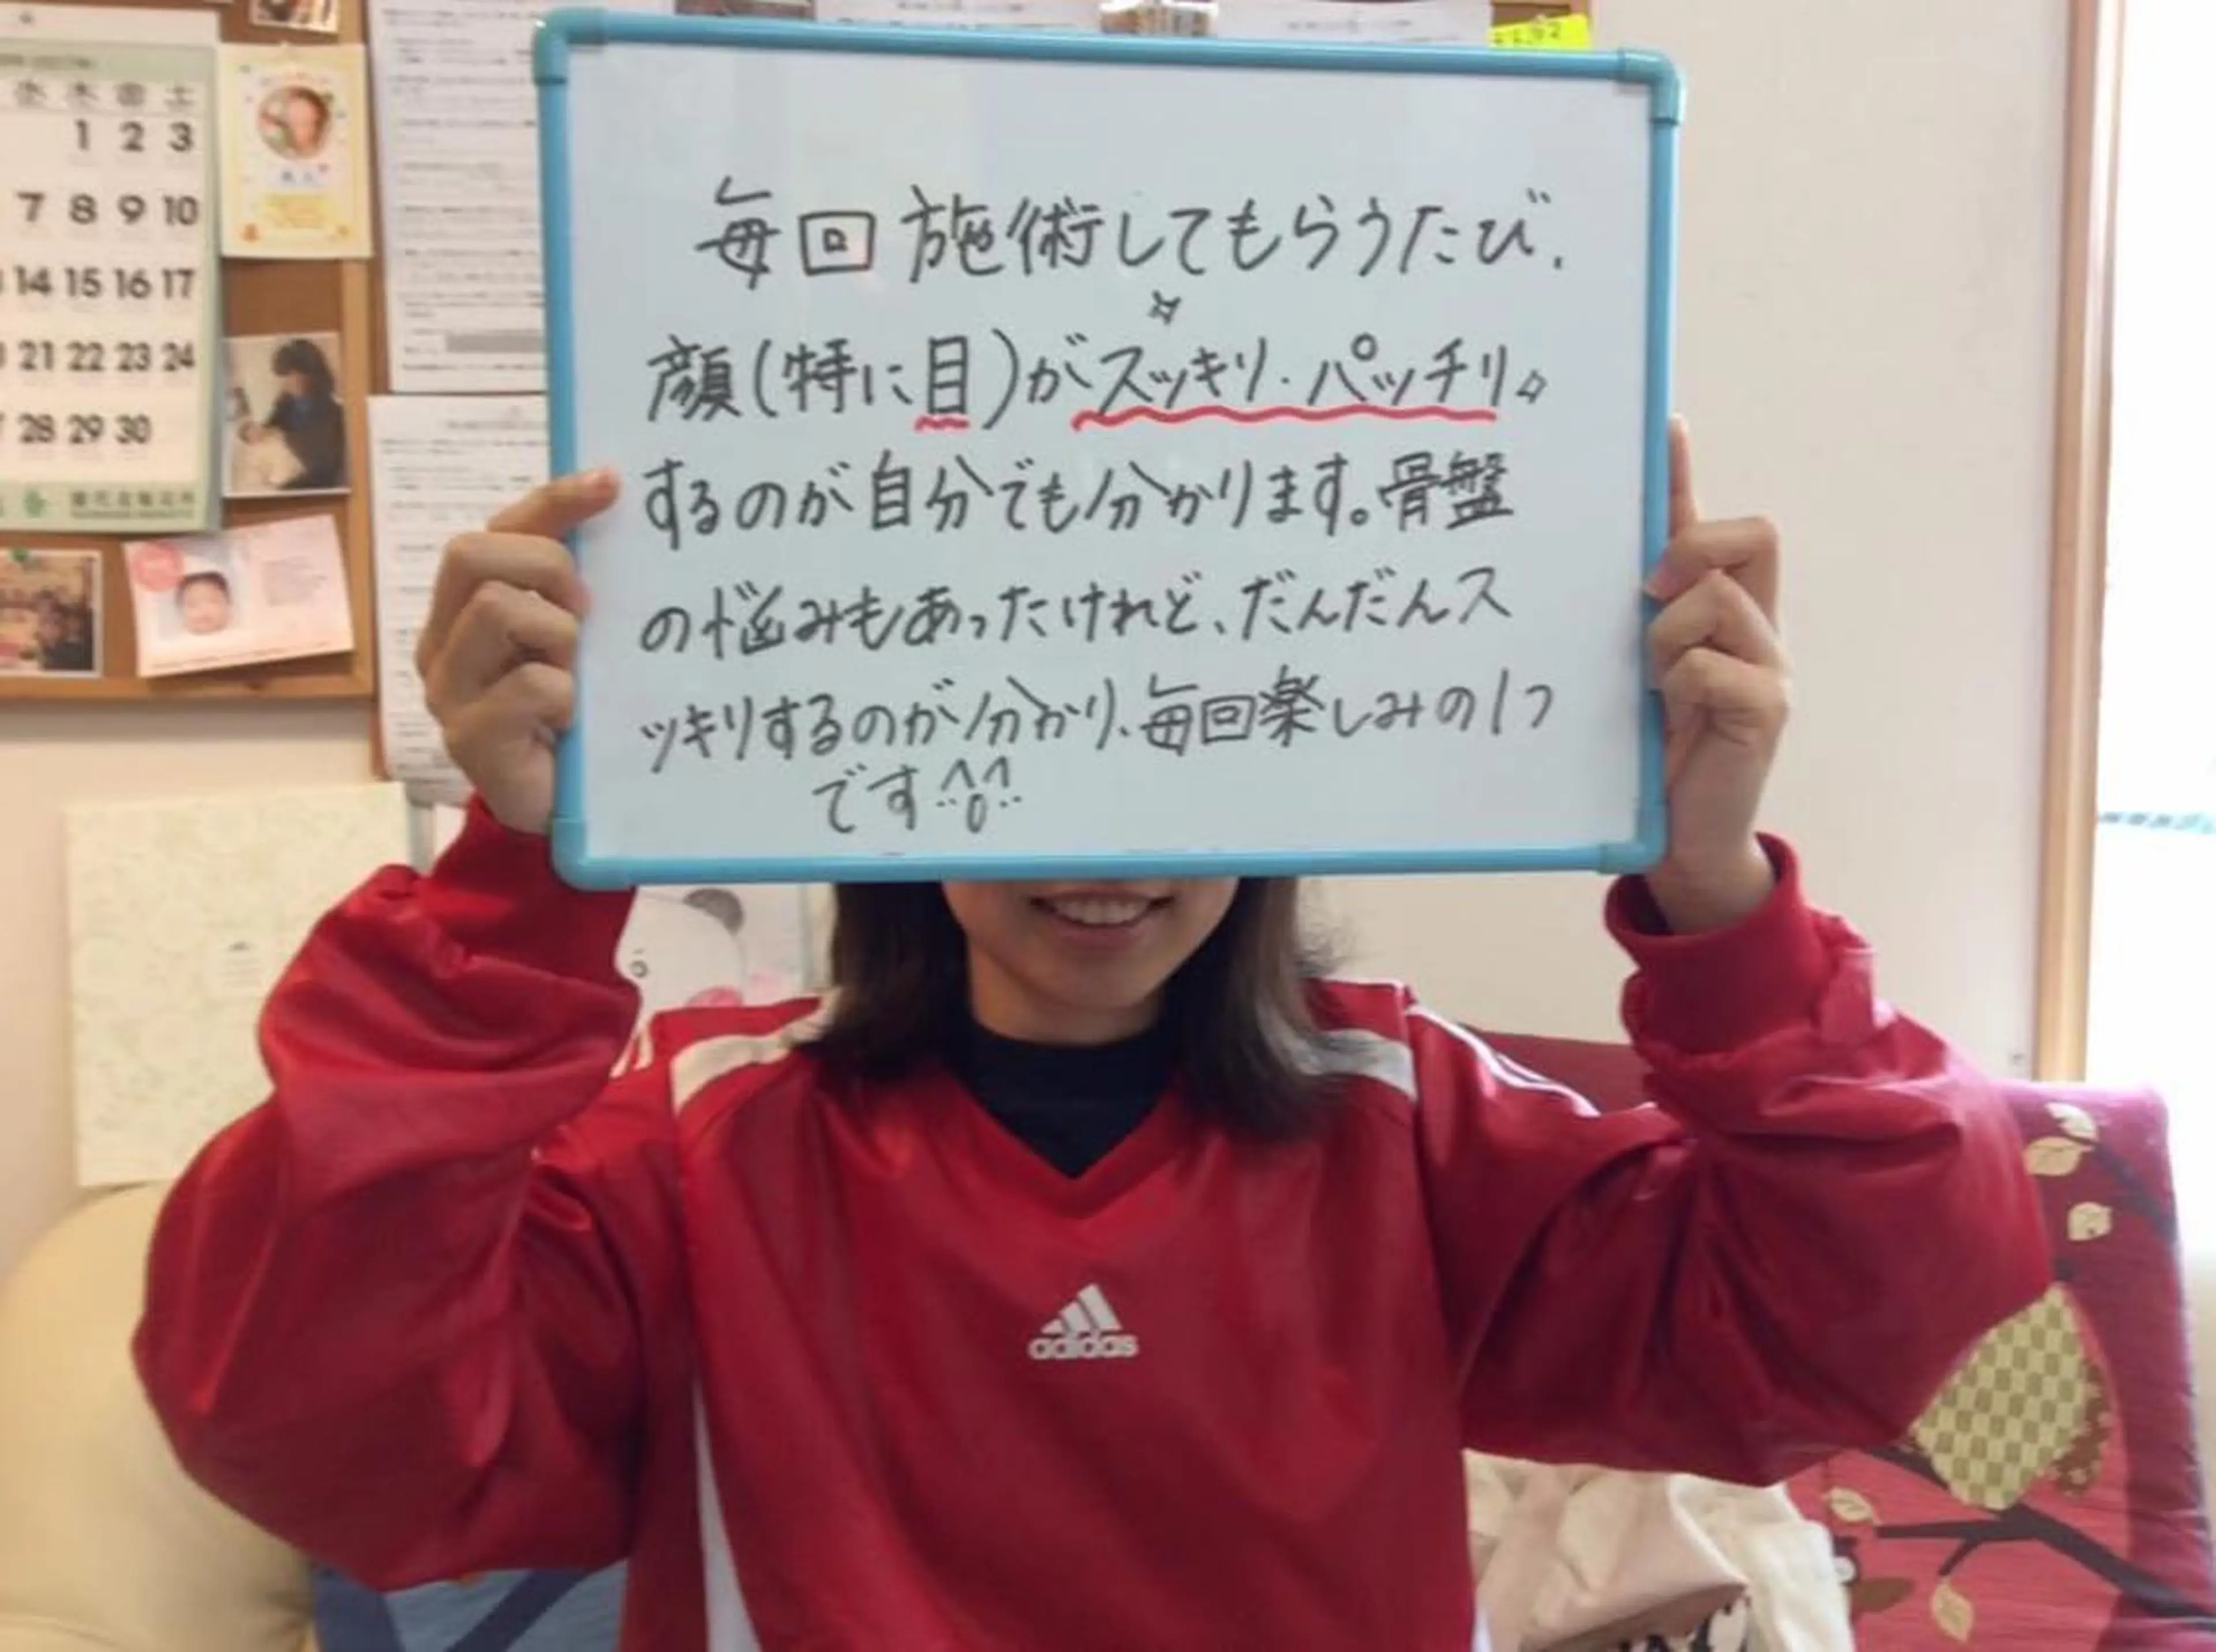 毎回施術してもらうたび、
顔(特に目)がスッキリ・パッチリ
するのが自分でも分かります。骨盤
の悩みもあったけれど、だんだんス
ッキリするのが分かり、毎回楽しみの1つ
です^o^
adidas
水 木 金 土
1 2 3
7 8 9 10
14 15 16 17
21 22 23 24
28 29 30